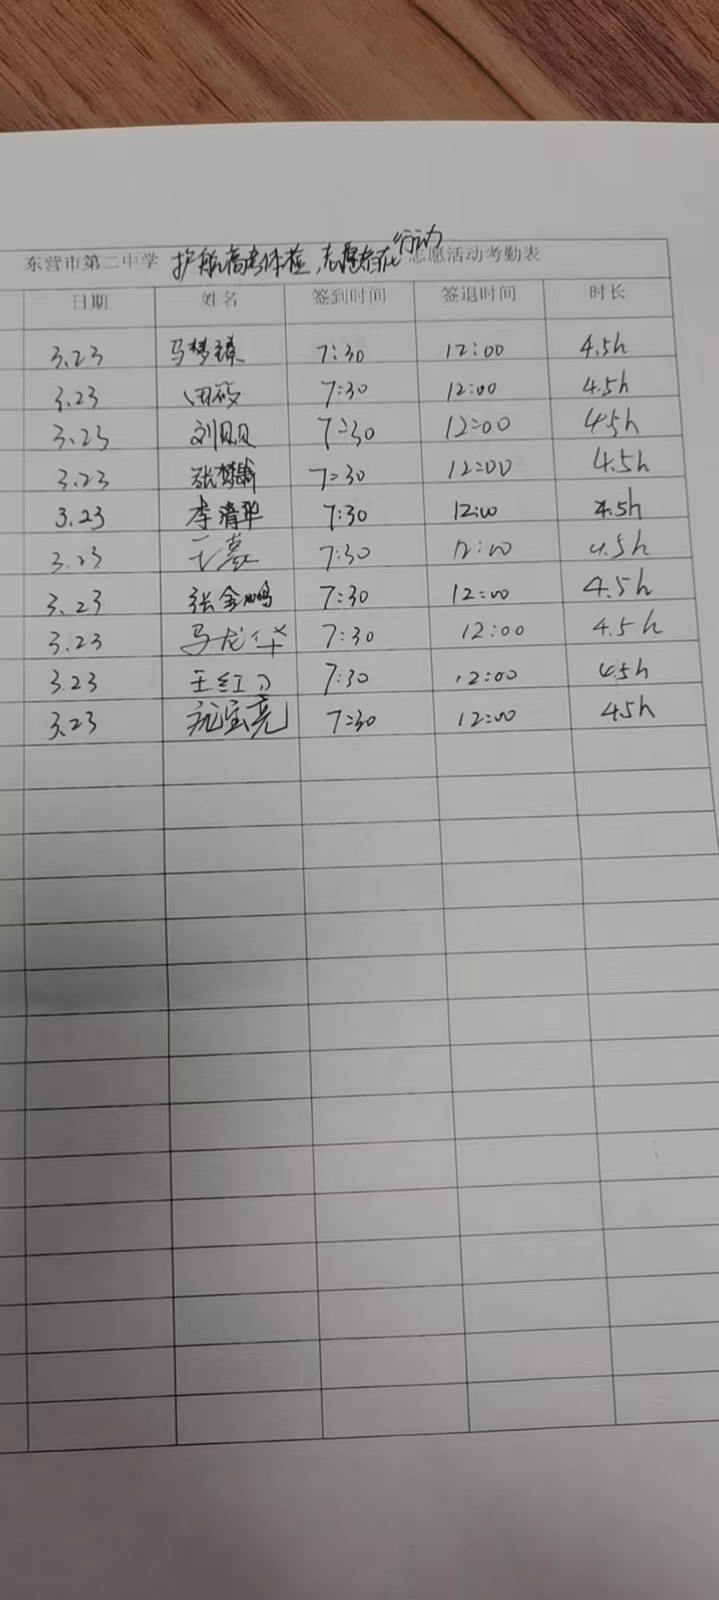 东营市第二中学 护航高考体检,志愿者在行动 志愿活动考勤表
日期 姓名 签到时间 签退时间 时长
3.23 马梦 7:30 12:00 4.5h
3.23 田筱 7:30 12:00 4.5h
3.23 刘贝贝 7:30 12:00 4.5h
3.23 张 7:30 12:00 4.5h
3.23 李清华 7:30 12:00 4.5h
3.23 7:30 12:00 4.5h
3.23 张金鹏 7:30 12:00 4.5h
3.23 马龙华 7:30 12:00 4.5h
3.23 王红 7:30 12:00 4.5h
3.23 宝亮 7:30 12:00 4.5h